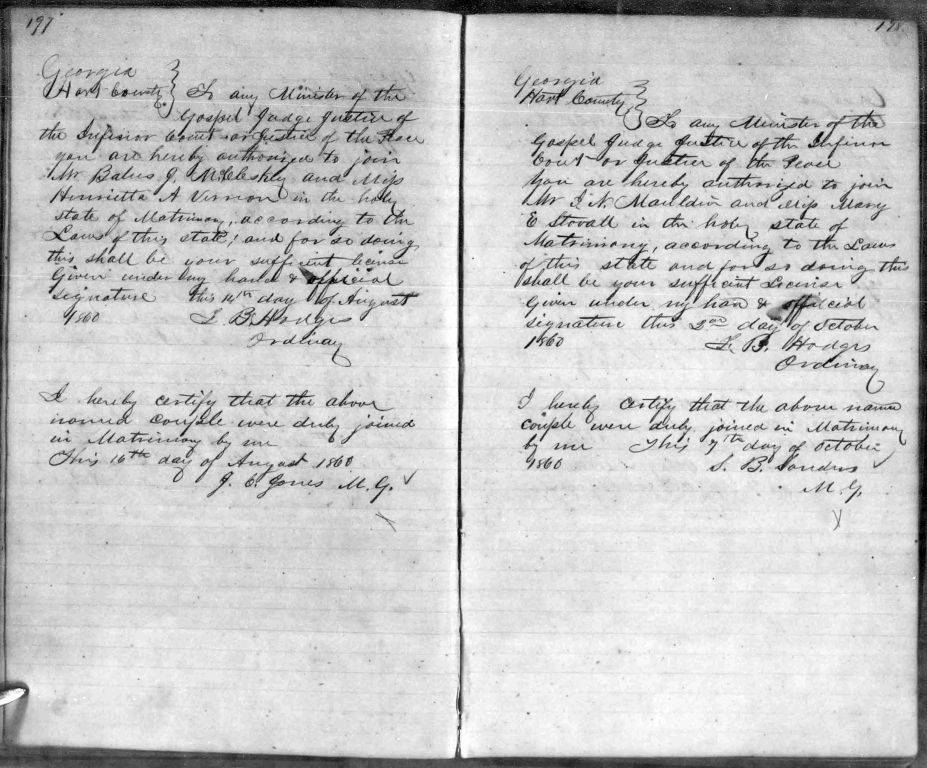 197
Georgia
Hart County } To any Minister of the
Gospel Judge Justice of
the Inferior Court or Justice of the Peace
you are hereby authorised to join
Mr. J. McCleskey and Miss
Henrietta A Vernon in the holy
state of Matrimony, according to the
Laws of this state; and for so doing
this shall be your sufficent license
Given under my hand & official
signature this 14th day of August
1860 F. B. Hodges
Ordinay
I hereby certify that the above
named couple were duly joined
in Matrimony by me
This 16th day of August 1860
J. C. Jones M. G.
198
Georgia
Hart County } To any Minister of the
Gospel Judge Justice of the Inferior
Court or Justice of the Peace
You are hereby authorized to join
Mr I. N. Mauldin and Miss Mary
E Stovall in the holy state of
Matrimony, according to the Laws
of this state and for so doing this
shall be your sufficent License
Given under my han & official
signature this 2nd day of October
1860 F. B. Hodges
Ordinay
I hereby certify that the above name
couple were duly joined in Matrimony
by me This 7th day of October
1860 S. B. Sanders
M. G.